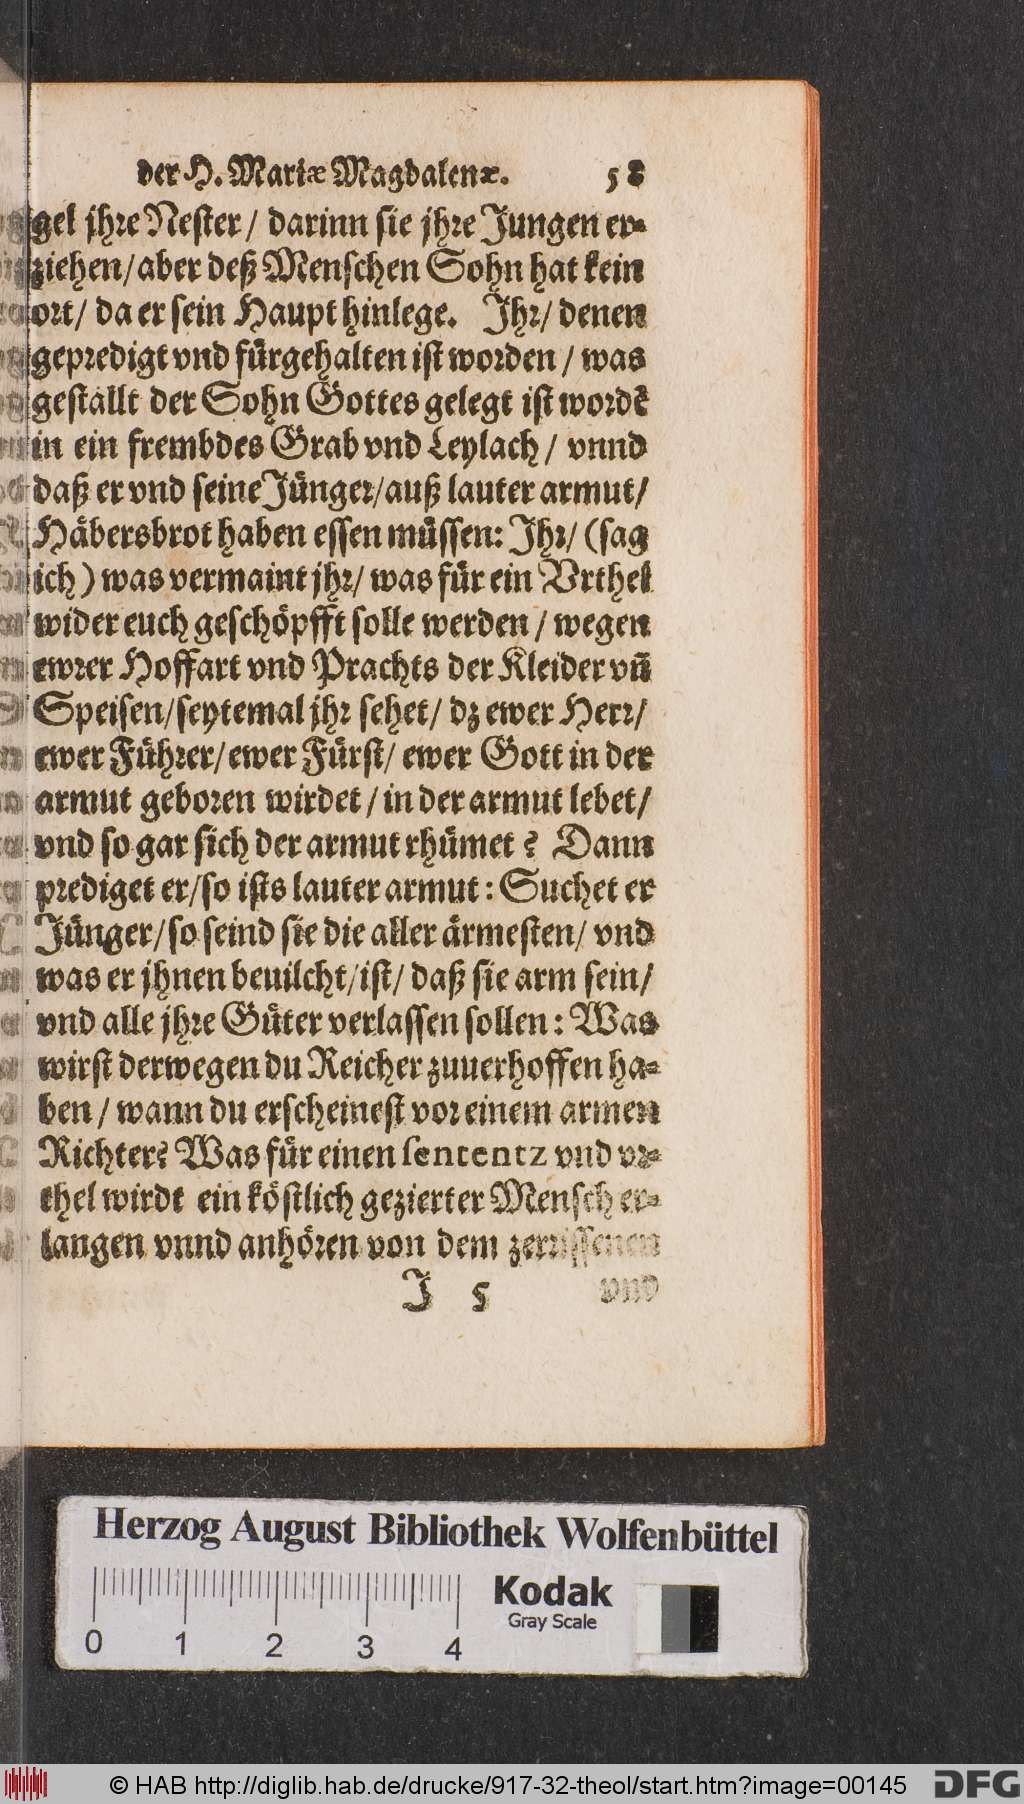 der H. Mariæ Magdalenæ. 58
gel jhre Nester / darinn sie jhre Jungen er⸗
ziehen/ aber deß Menschen Sohn hat kein
ort/ da er sein Haupt hinlege. Jhr/ denen
gepredigt vnd fürgehalten ist worden / was
gestallt der Sohn Gottes gelegt ist wordẽ
in ein frembdes Grab vnd Leylach / vnnd
daß er vnd seine Jünger/ auß lauter armut/
Häbersbrot haben essen müssen: Jhr/ (sag
ich) was vermaint jhr/ was für ein Vrthel
wider euch geschöpfft solle werden / wegen
ewrer Hoffart vnd Prachts der Kleider vñ
Speisen/ seytemal jhr sehet/ dz ewer Herr/
ewer Führer/ ewer Fürst/ ewer Gott in der
armut geboren wirdet / in der armut lebet/
vnd so gar sich der armut rhümet? Dann
prediget er/ so ists lauter armut: Suchet er
Jünger/ so seind sie die aller ärmesten/ vnd
was er jhnen beuilcht/ ist/ daß sie arm sein/
vnd alle jhre Güter verlassen sollen: Was
wirst derwegen du Reicher zuuerhoffen ha⸗
ben / wann du erscheinest vor einem armen
Richter? Was für einen sententz vnd vr⸗
thel wirdt ein köstlich gezierter Mensch er⸗
langen vnnd anhören von dem zerrissenen
J 5 vnd
Herzog August Bibliothek Wolfenbüttel
Kodak
Gray Scale
0 1 2 3 4
© HAB http://diglib.hab.de/drucke/917-32-theol/start.htm?image=00145 DFG